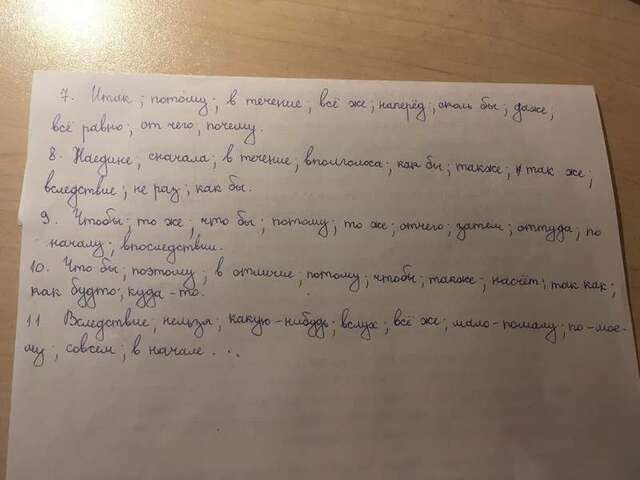 7. Итак; потому; в течение; всё же; наперёд; коль бы; даже;
всё равно; от чего; почему.
8. Наедине; сначала; в течение; вполголоса; как бы; также; так же;
вследствие; не раз; как бы.
9. Чтобы; то же; что бы; потому; то же; отчего; затем; оттуда; по
началу; впоследствии.
10. Что бы; поэтому; в отличие; потому; чтобы; также; насчёт; так как;
как будто; куда-то.
11 Вследствие; нельзя; какую-нибудь; вслух; всё же; мало-помалу; по-мое-
му; совсем; в начале ...